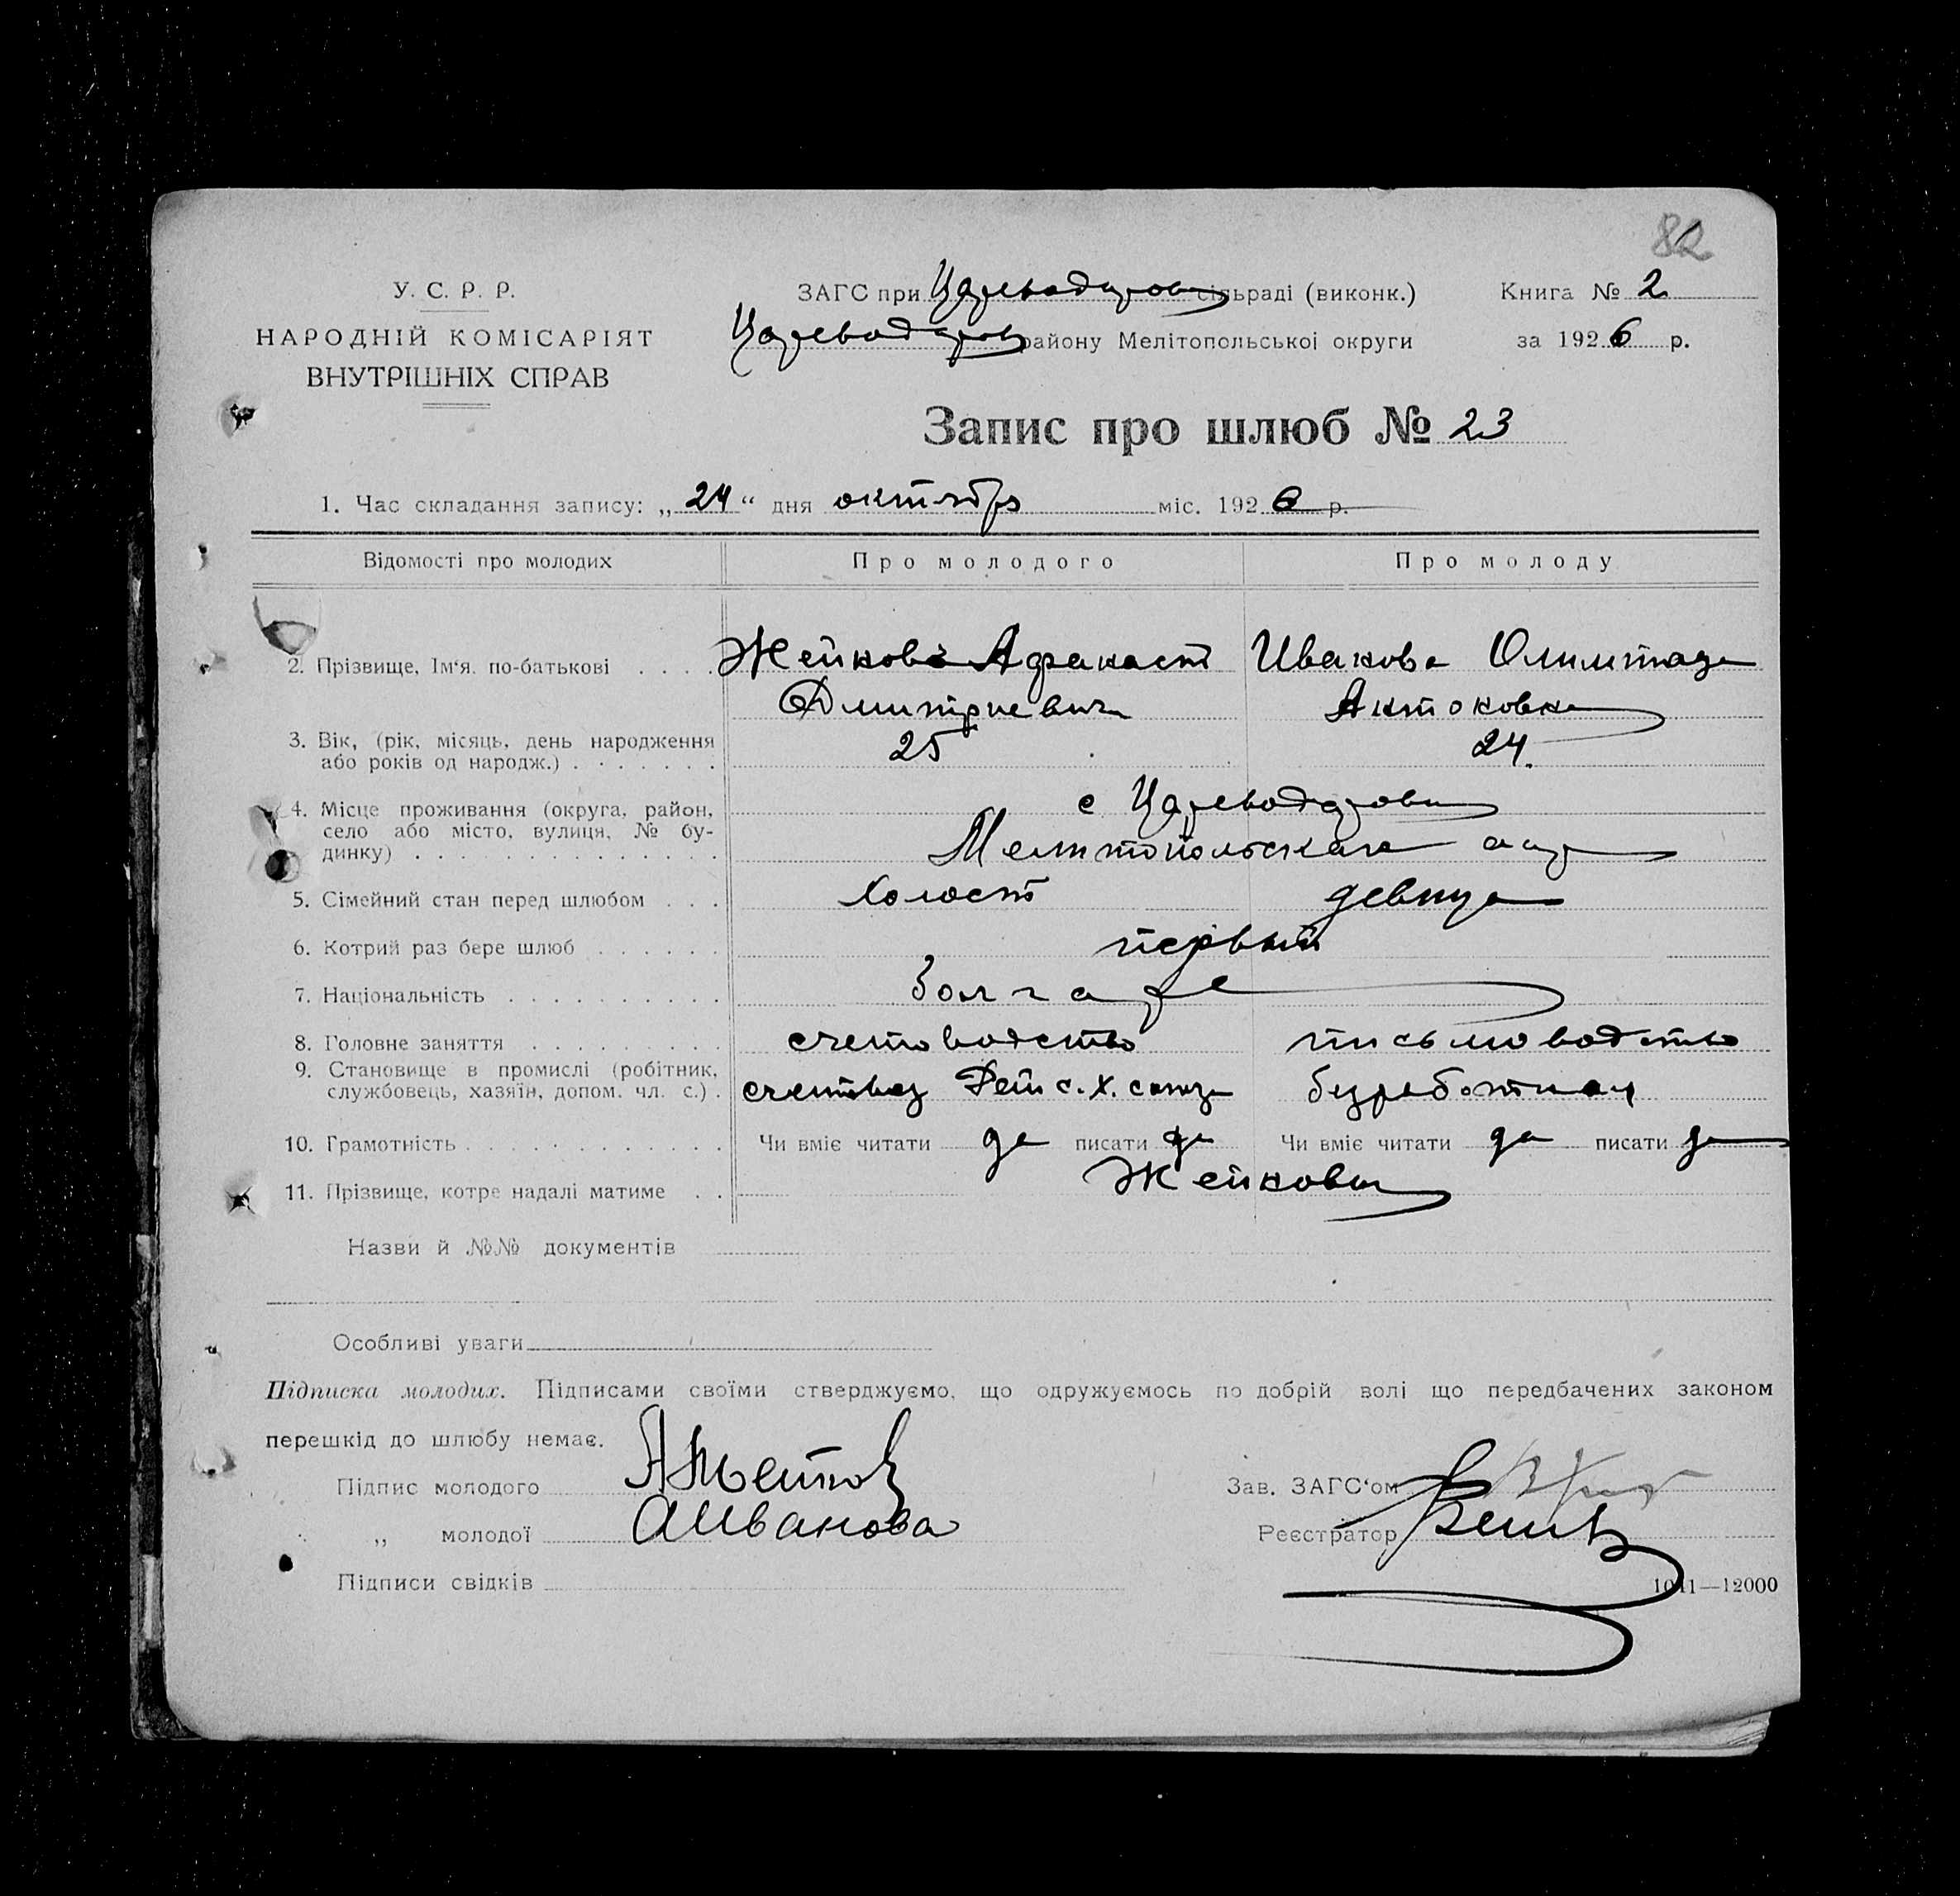 82
У. С. Р. Р.
НАРОДНІЙ КОМІСАРІЯТ
ВНУТРІШНІХ СПРАВ
ЗАГС при Цареводаровск сільраді (виконк.)
Цареводаров району Мелітопольської округи
Книга № 2
за 1926 р.
Запис про шлюб № 23
1. Час складання запису: „24“ дня октября міс. 1926 р.
Відомості про молодих Про молодого Про молоду
2. Прізвище, Ім‘я. по-батькові Жейков Афанаст Иванова Олимпиада
Дмитриевич Антоновна
3. Вік, (рік, місяць, день народження
або років од народж.) 25 24
4. Місце проживання (округа, район,
село або місто, вулиця, № бу-
динку)
с Цареводаровка
Мелитопольская
5. Сімейний стан перед шлюбом холост девица
6. Котрий раз бере шлюб первый
7. Національність болгаре
8. Головне заняття счетоводство письмоводство
9. Становище в промислі (робітник,
службовець, хазяїн, допом. чл. с.) счетовод с. х. союза безработная
10. Грамотність Чи вміє читати да писати да Чи вміє читати да писати да
11. Прізвище, котре надалі матиме Жейковы
Назви й №№ документів
Особливі уваги
Підписка молодих. Підписами своїми стверджуємо, що одружуємось по добрій волі що передбачених законом
перешкід до шлюбу немає.
Підпис молодого АЖейков
„ молодої АИванова
Підписи свідків
Зав. ЗАГС‘ом
Реєстратор
1041—12000